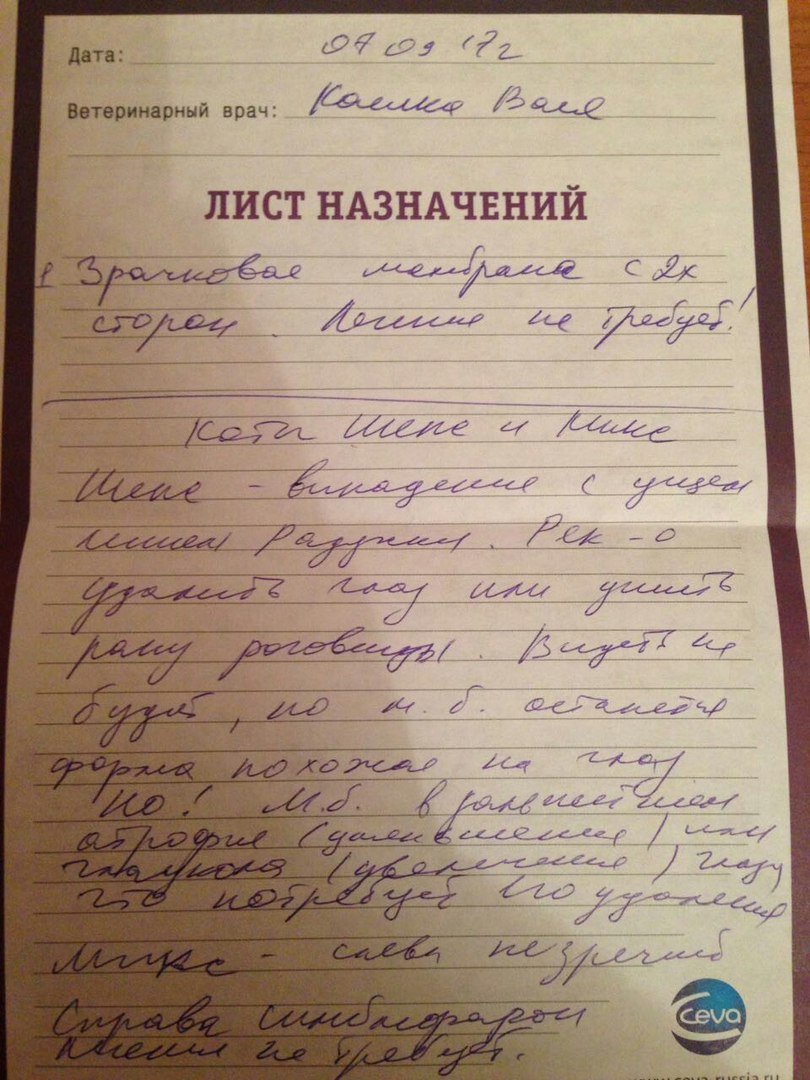 Дата: 07 09 17г
Ветеринарный врач: Кошка Вася
ЛИСТ НАЗНАЧЕНИЙ
1 Зрачковая мембрана с 2х
сторон. Лечения не требует!
Коты Шепс и Микс
Шепс - выпадение с ущем
лением радужки. Рек-о
удалить глаз или ушить
рану роговицы. Видеть не
будет, но м.б. останется
форма похожая на глаз
Но! М.б. в дальнейшем
атрофия (уменьшение) или
глаукома (увеличение) глаза
что потребует его удаления
Микс - слева незрячий
Справа симблефарон
лечения не требует.
ceva
www.ceva-russia.ru